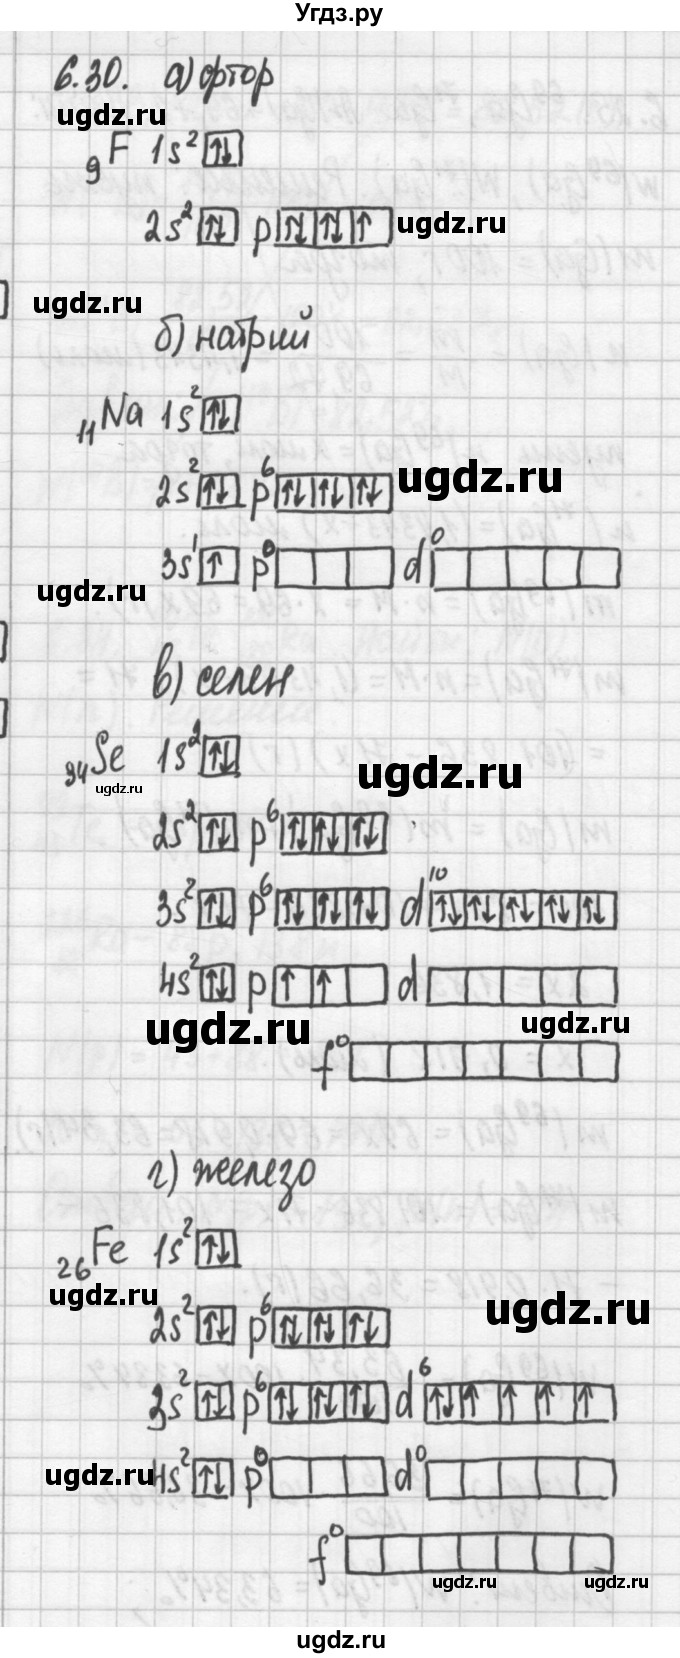 Угдз.ру
6.30. а) фтор
ugdz.ru
₉F 1s² ↑↓
2s² ↑↓ p ↑↓ ↑↓ ↑ ugdz.ru
ugdz.ru
б) натрий
₁₁Na 1s² ↑↓
2s² ↑↓ p⁶ ↑↓ ↑↓ ↑↓ ugdz.ru
3s¹ ↑ p⁰ d⁰
ugdz.ru
в) селен
₃₄Se 1s² ↑↓ ugdz.ru
ugdz.ru
2s² ↑↓ p⁶ ↑↓ ↑↓ ↑↓
3s² ↑↓ p⁶ ↑↓ ↑↓ ↑↓ d¹⁰ ↑↓ ↑↓ ↑↓ ↑↓ ↑↓
4s² ↑↓ p ↑ ↑ d
ugdz.ru ugdz.ru
f⁰
г) железо
₂₆Fe 1s² ↑↓
ugdz.ru ugdz.ru
2s² ↑↓ p⁶ ↑↓ ↑↓ ↑↓
3s² ↑↓ p⁶ ↑↓ ↑↓ ↑↓ d⁶ ↑↓ ↑ ↑ ↑ ↑
ugdz.ru 4s² ↑↓ p⁰ d⁰
f⁰
ugdz.ru ugdz.ru
ugdz.ru